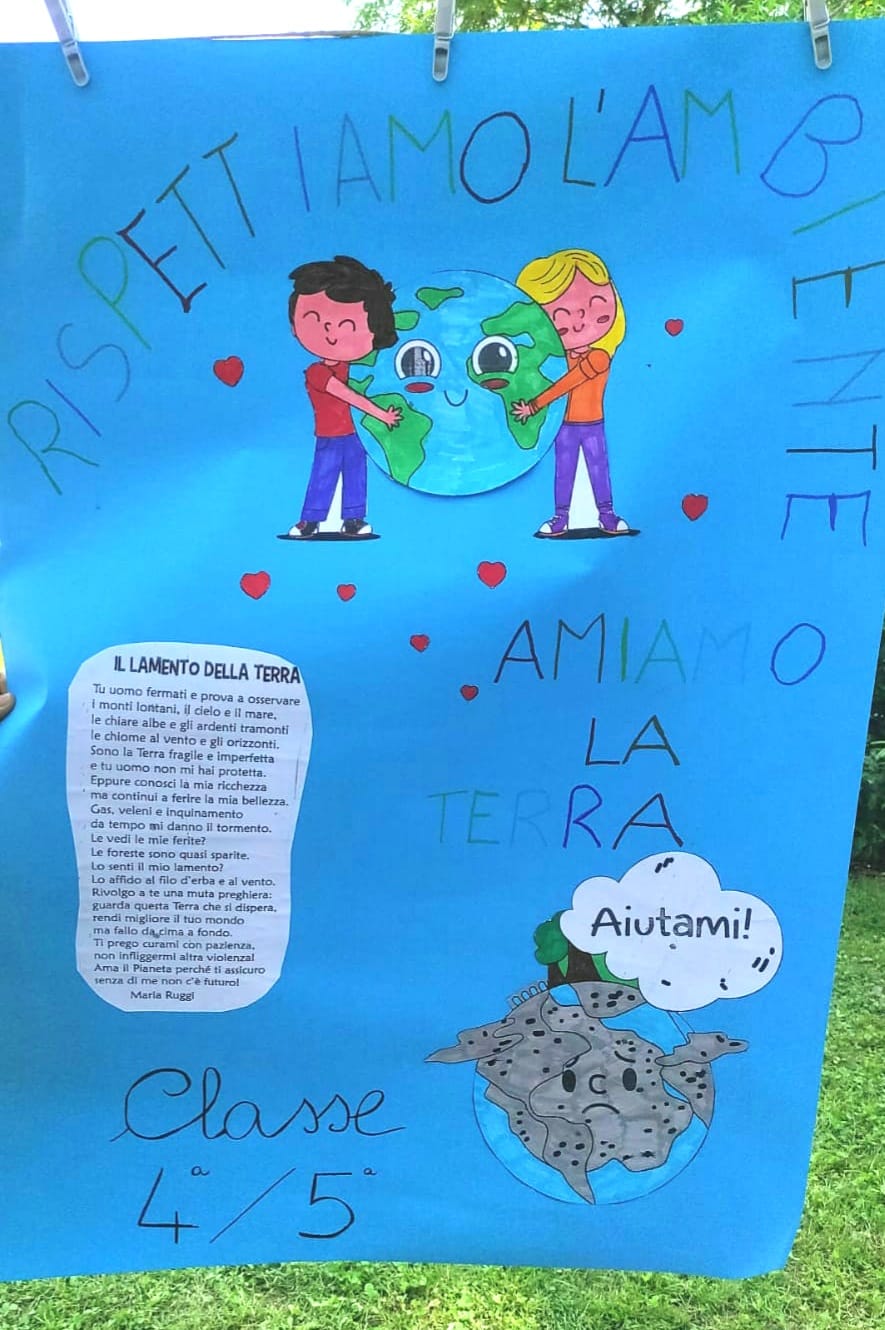 RISPETTIAMO L'AMBIENTE
AMIAMO
LA
TERRA
IL LAMENTO DELLA TERRA
Tu uomo fermati e prova a osservare
i monti lontani, il cielo e il mare,
le chiare albe e gli ardenti tramonti
le chiome al vento e gli orizzonti.
Sono la Terra fragile e imperfetta
e tu uomo non mi hai protetta.
Eppure conosci la mia ricchezza
ma continui a ferire la mia bellezza.
Gas, veleni e inquinamento
da tempo mi danno il tormento.
Le vedi le mie ferite?
Le foreste sono quasi sparite.
Lo senti il mio lamento?
Lo affido al filo d'erba e al vento.
Rivolgo a te una muta preghiera:
guarda questa Terra che si dispera,
rendi migliore il tuo mondo
ma fallo da cima a fondo.
Ti prego curami con pazienza,
non infliggermi altra violenza!
Ama il Pianeta perché ti assicuro
senza di me non c'è futuro!
Maria Ruggi
Aiutami!
Classe
4ª/5ª